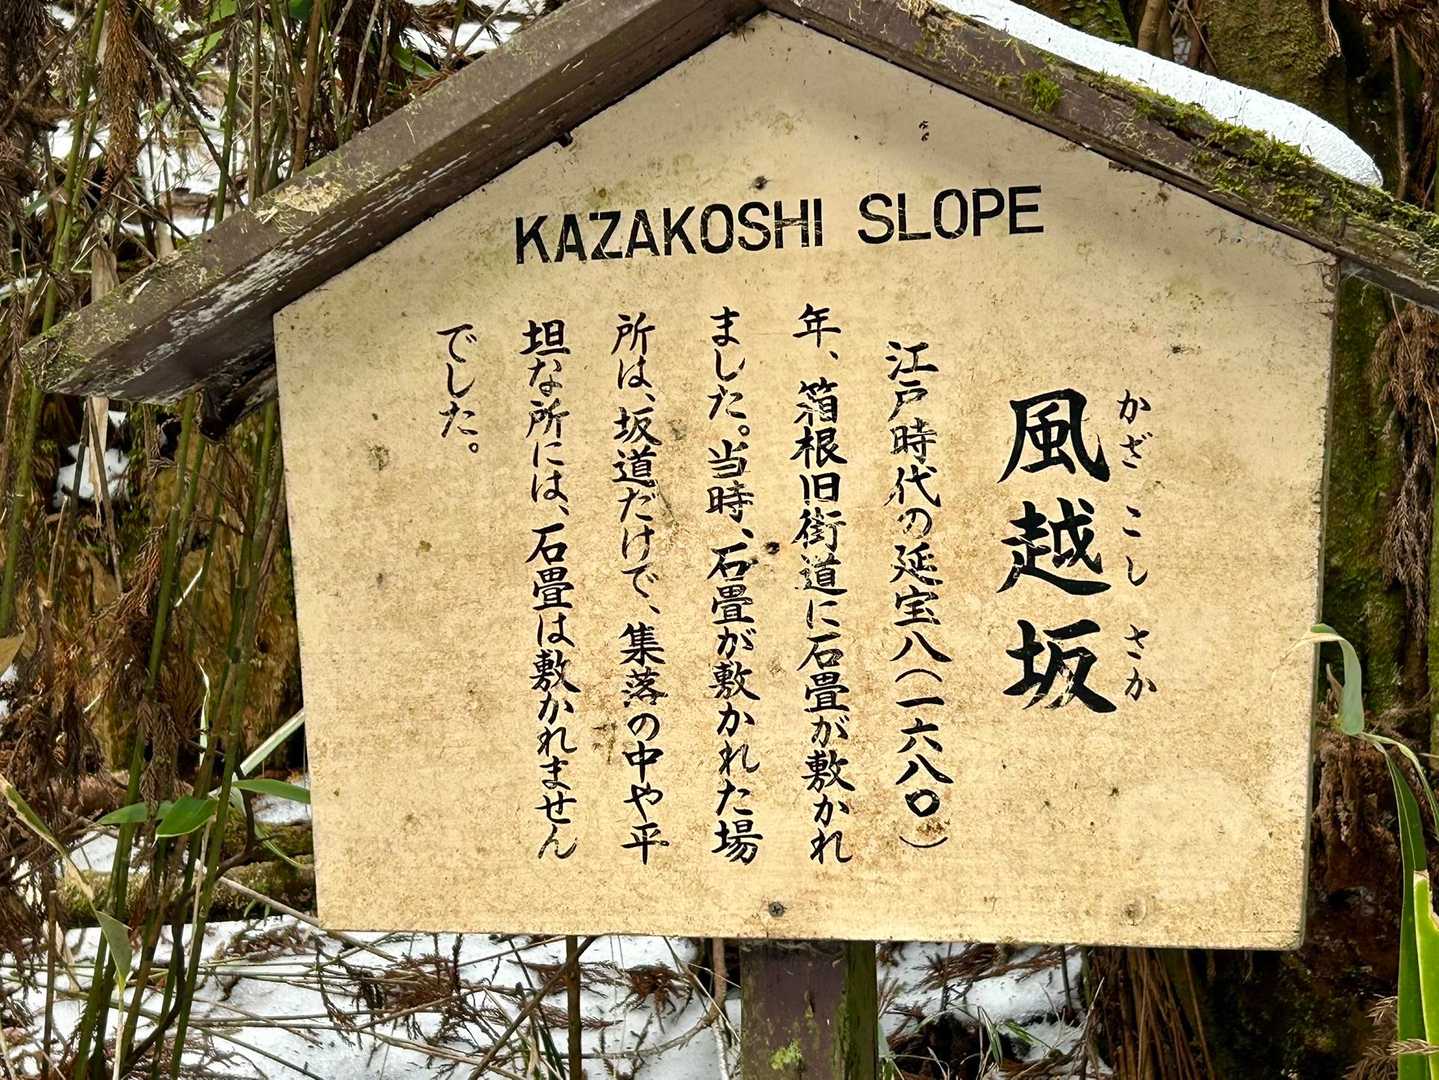 KAZAKOSHI SLOPE
風越坂
かざこしさか
江戸時代の延宝八(一六八〇)
年、箱根旧街道に石畳が敷かれ
ました。当時、石畳が敷かれた場
所は、坂道だけで、集落の中や平
坦な所には、石畳は敷かれません
でした。